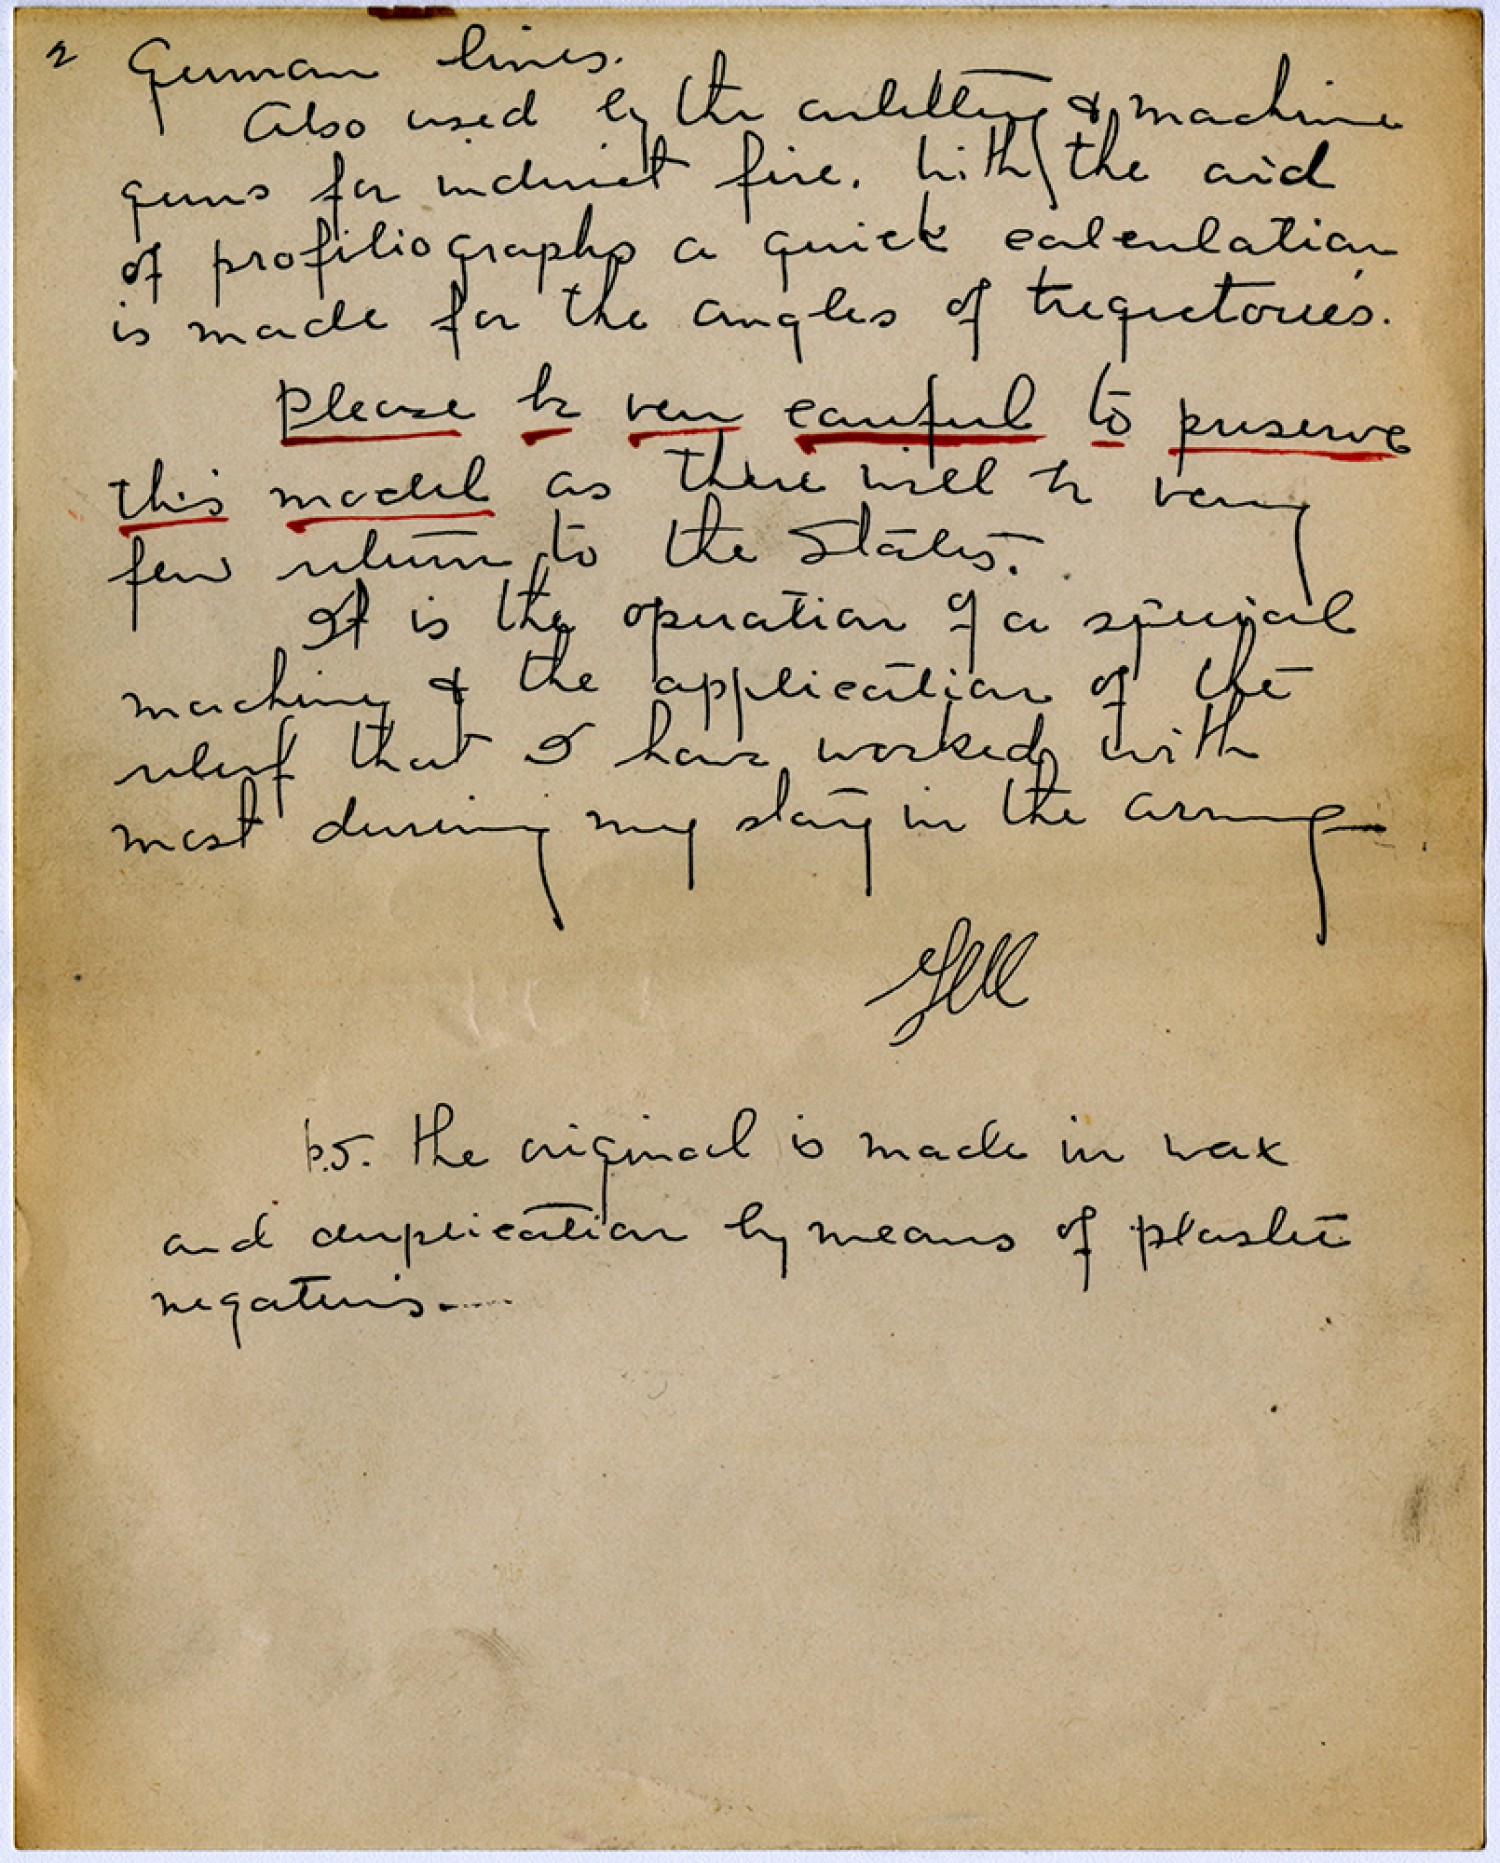 2 German lines.
Also used by the artillery & machine
guns for indirect fire. With the aid
of profiliographs a quick calculation
is made for the angles of trejectories.
please be very careful to preserve
this model as there will be very
few return to the States.
It is the operation of a special
machine & the application of the
relief that I have worked with
most during my stay in the army
p.s. the original is made in wax
and duplication by means of plaster
negatives.